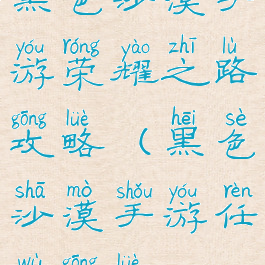 黑色沙漠手
yóu róng yào zhī lù
游荣耀之路
gōng lüè hēi sè
攻略（黑色
shā mò shǒu yóu rèn
沙漠手游任
wù gōng lüè